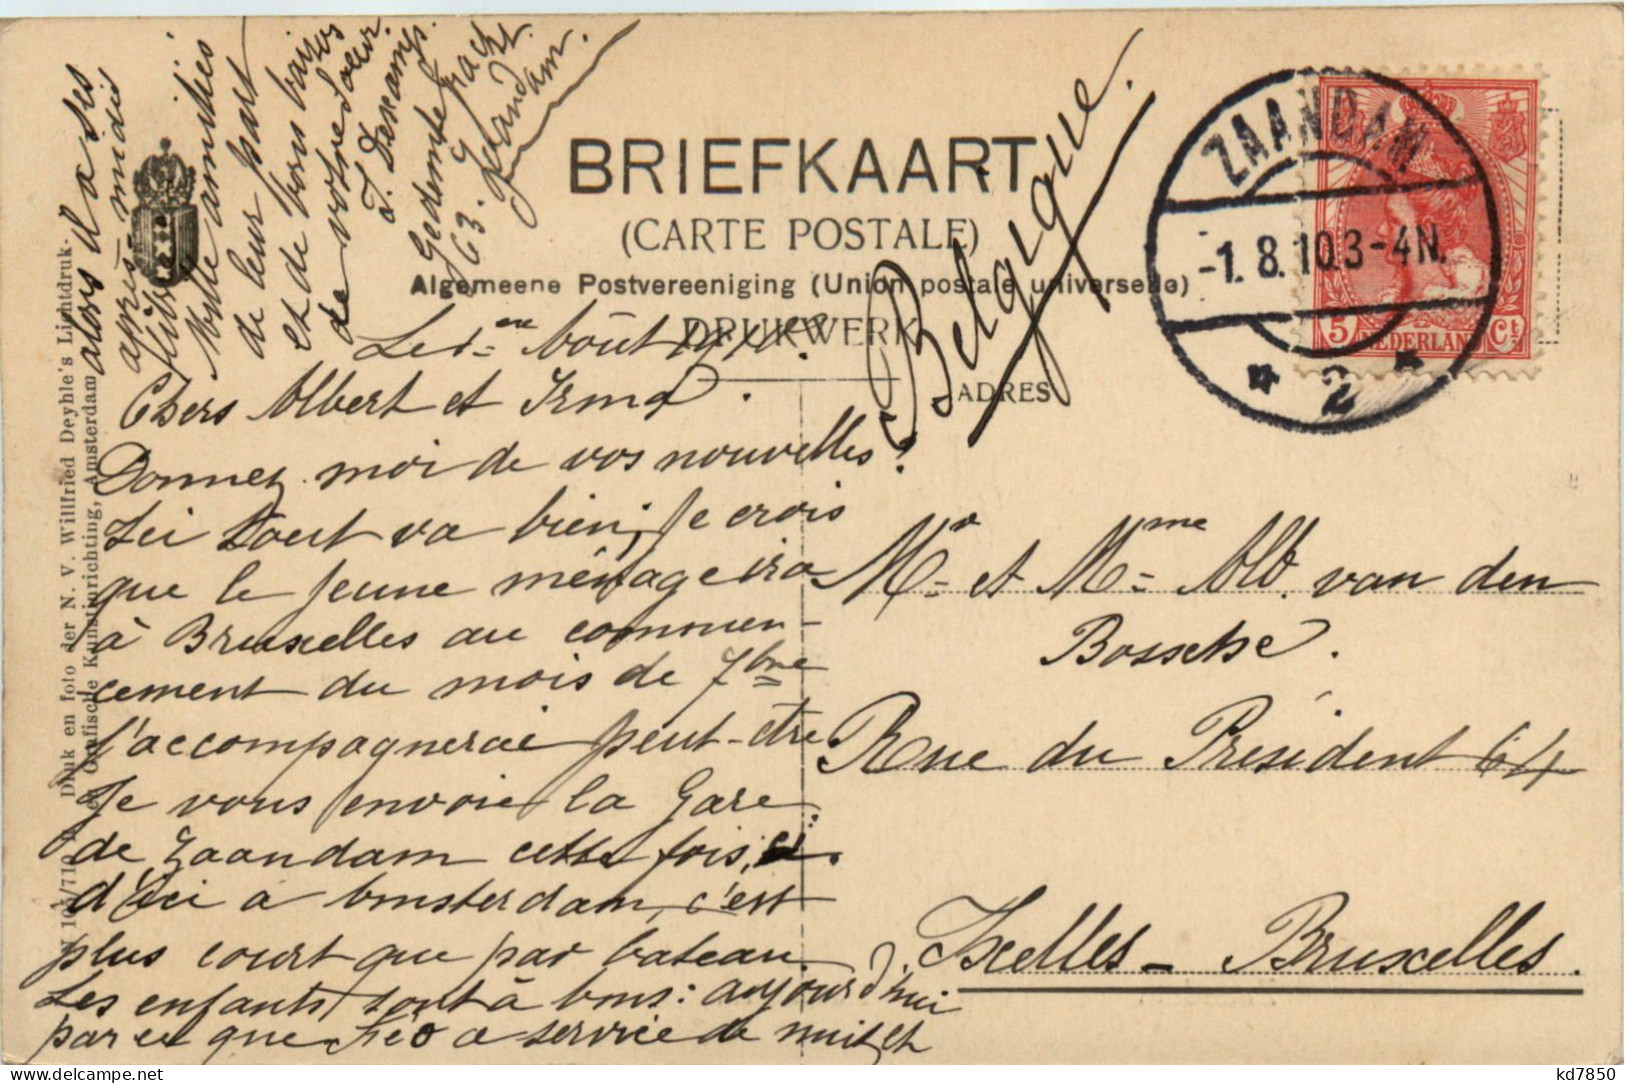 BRIEFKAART
(CARTE POSTALE)
Algemeene Postvereeniging (Union postale universelle)
DRUKWERK
ADRES
Belgique.
ZAANDAM
-1.8.10.3-4N.
2
5 Ct
NEDERLAND
Druk en foto der N. V. Willfried Deyhle's Lichtdruk-
Grafische Kunstinrichting, Amsterdam
Le 1ere août 1910.
Chers Albert et Irma.
Donnez moi de vos nouvelles!
Ici tout va bien, je crois
que le jeune ménage ira
à Bruxelles au commen-
cement du mois de 7bre
j'accompagnerai peut-être
Je vous envoie la Gare
de Zaandam cette fois,
d'ici à Amsterdam, c'est
plus court que par bateau.
Les enfants sont à bons: aujourd'hui
parce que Léo a service de nuit et
alors il a ses
après-midis
libres
Mille amitiés
de leur part
et de bons baisers
de votre Soeur.
J. Descamps.
Gedempte Gracht
63. Zaandam.
Mr et Mme Alb. van den
Bossche.
Rue du Président 64
Ixelles - Bruxelles.
kd7850